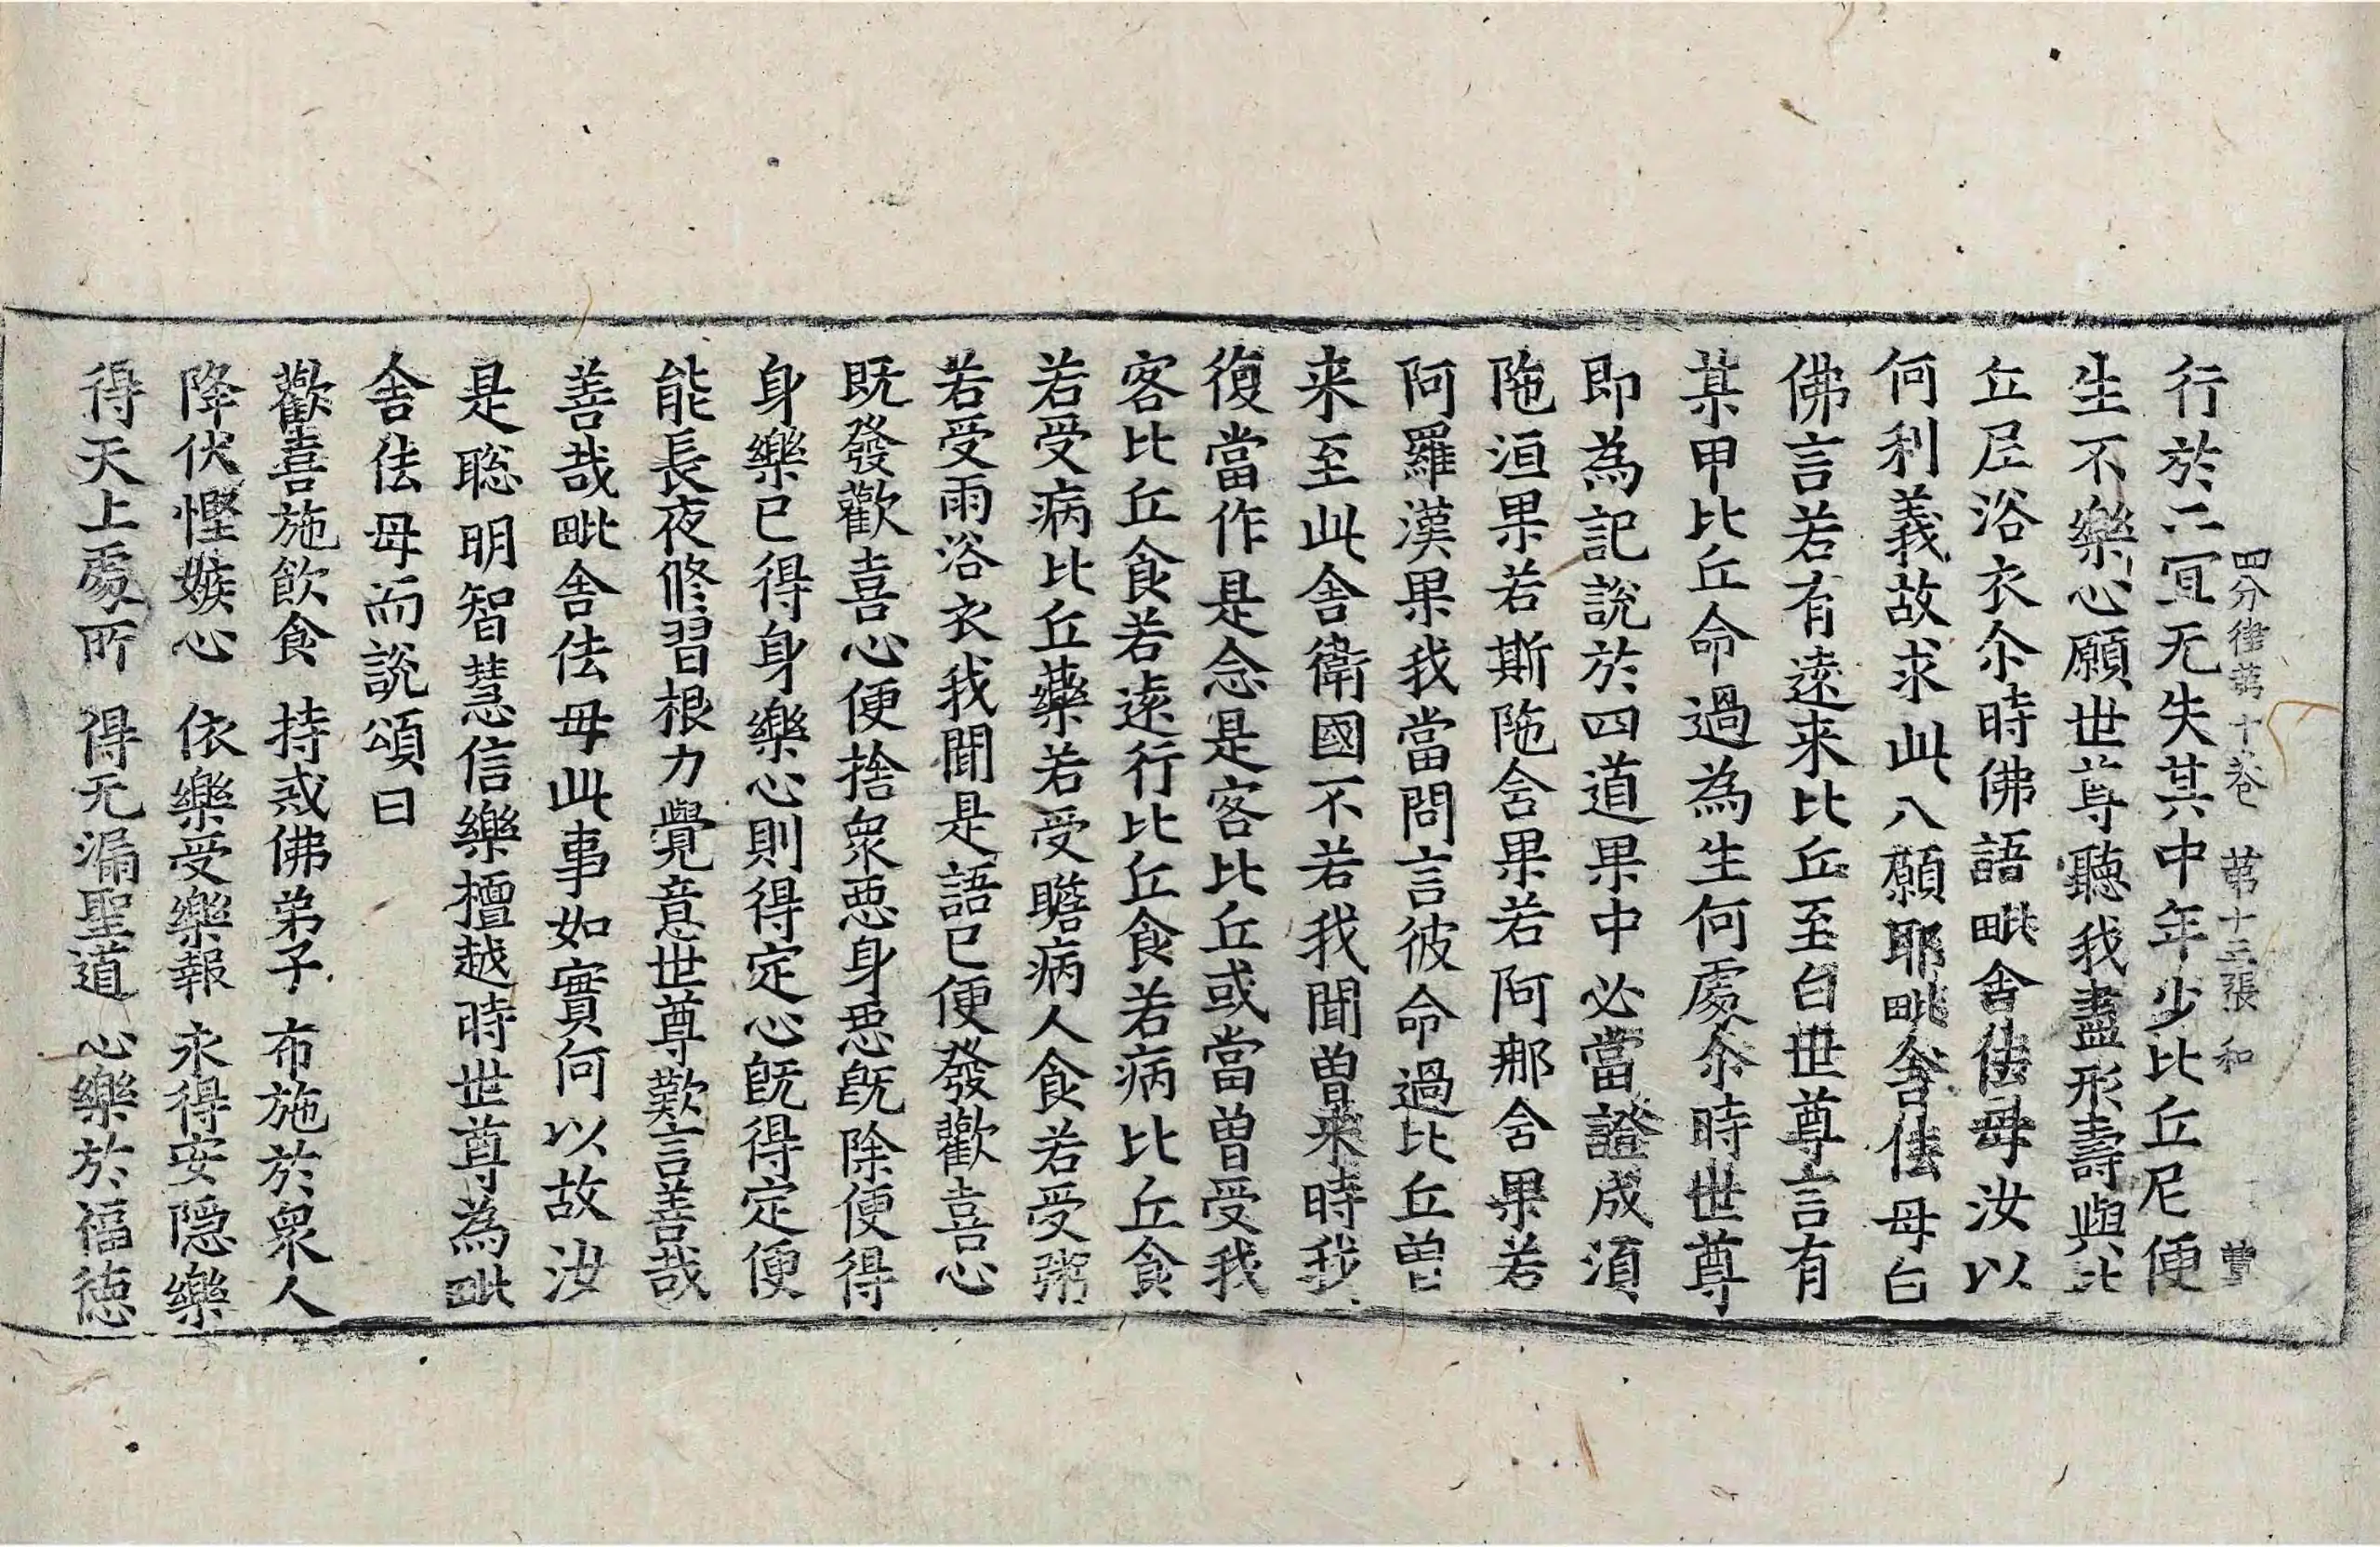 四分律第十卷 第十三張 和
行於二冝无失其中年少比丘尼便
生不樂心願世尊聽我盡形壽與比
丘尼浴衣尒時佛語毗舍佉母汝以
何利義故求此八願耶毗舍佉母白
佛言若有逺来比丘至白世尊言有
某甲比丘命過為生何處尒時世尊
即為記說於四道果中必當證成湏
陁洹果若斯陁含果若阿那含果若
阿羅漢果我當問言彼命過比丘曽
来至此舍衛國不若我聞曽来時我
復當作是念是客比丘或當曽受我
客比丘食若逺行比丘食若病比丘食
若受病比丘藥若受瞻病人食若受粥
若受雨浴衣我聞是語已便發歡喜心
既發歡喜心便捨衆惡身惡既除便得
身樂已得身樂心則得定心既得定便
能長夜修習根力覺意世尊歎言善哉
善哉毗舍佉母此事如實何以故汝
是聡明智慧信樂檀越時世尊為毗
舍佉母而說頌曰
歡喜施飲食 持戒佛弟子 布施於衆人
降伏慳嫉心 依樂受樂報 永得安隱樂
得天上處所 得无漏聖道 心樂於福德